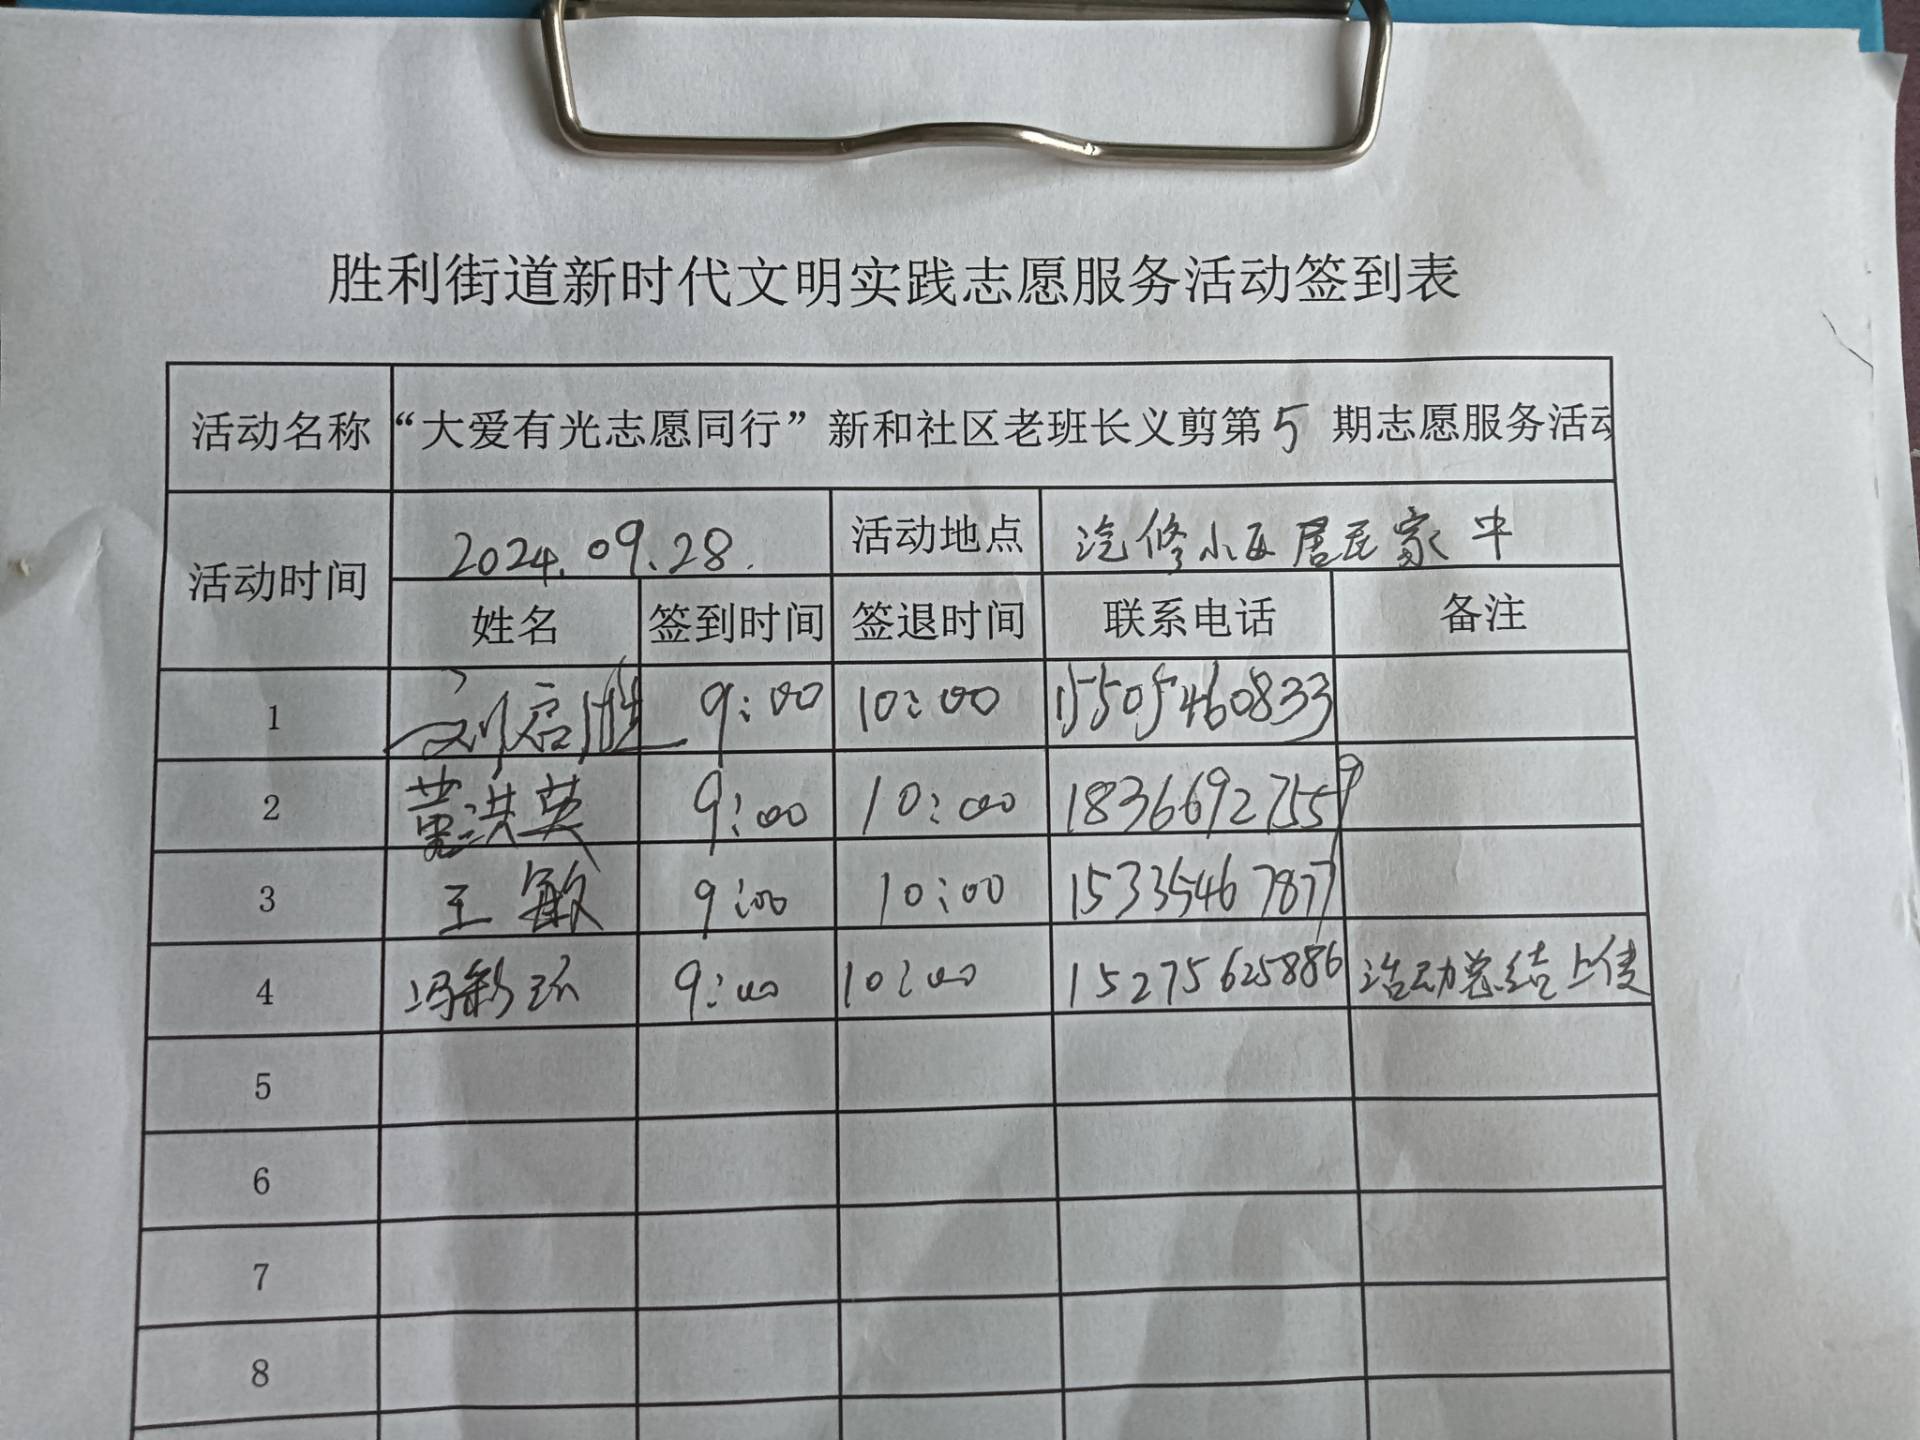 胜利街道新时代文明实践志愿服务活动签到表
活动名称 “大爱有光志愿同行”新和社区老班长义剪第5期志愿服务活动
活动时间 2024.09.28. 活动地点 汽修小区居民家中
姓名 签到时间 签退时间 联系电话 备注
1 刘启胜 9:00 10:00 15505460833
2 董洪英 9:00 10:00 18366927559
3 王敏 9:00 10:00 15335467877
4 冯彩环 9:00 10:00 15275625886 活动总结上传
5
6
7
8